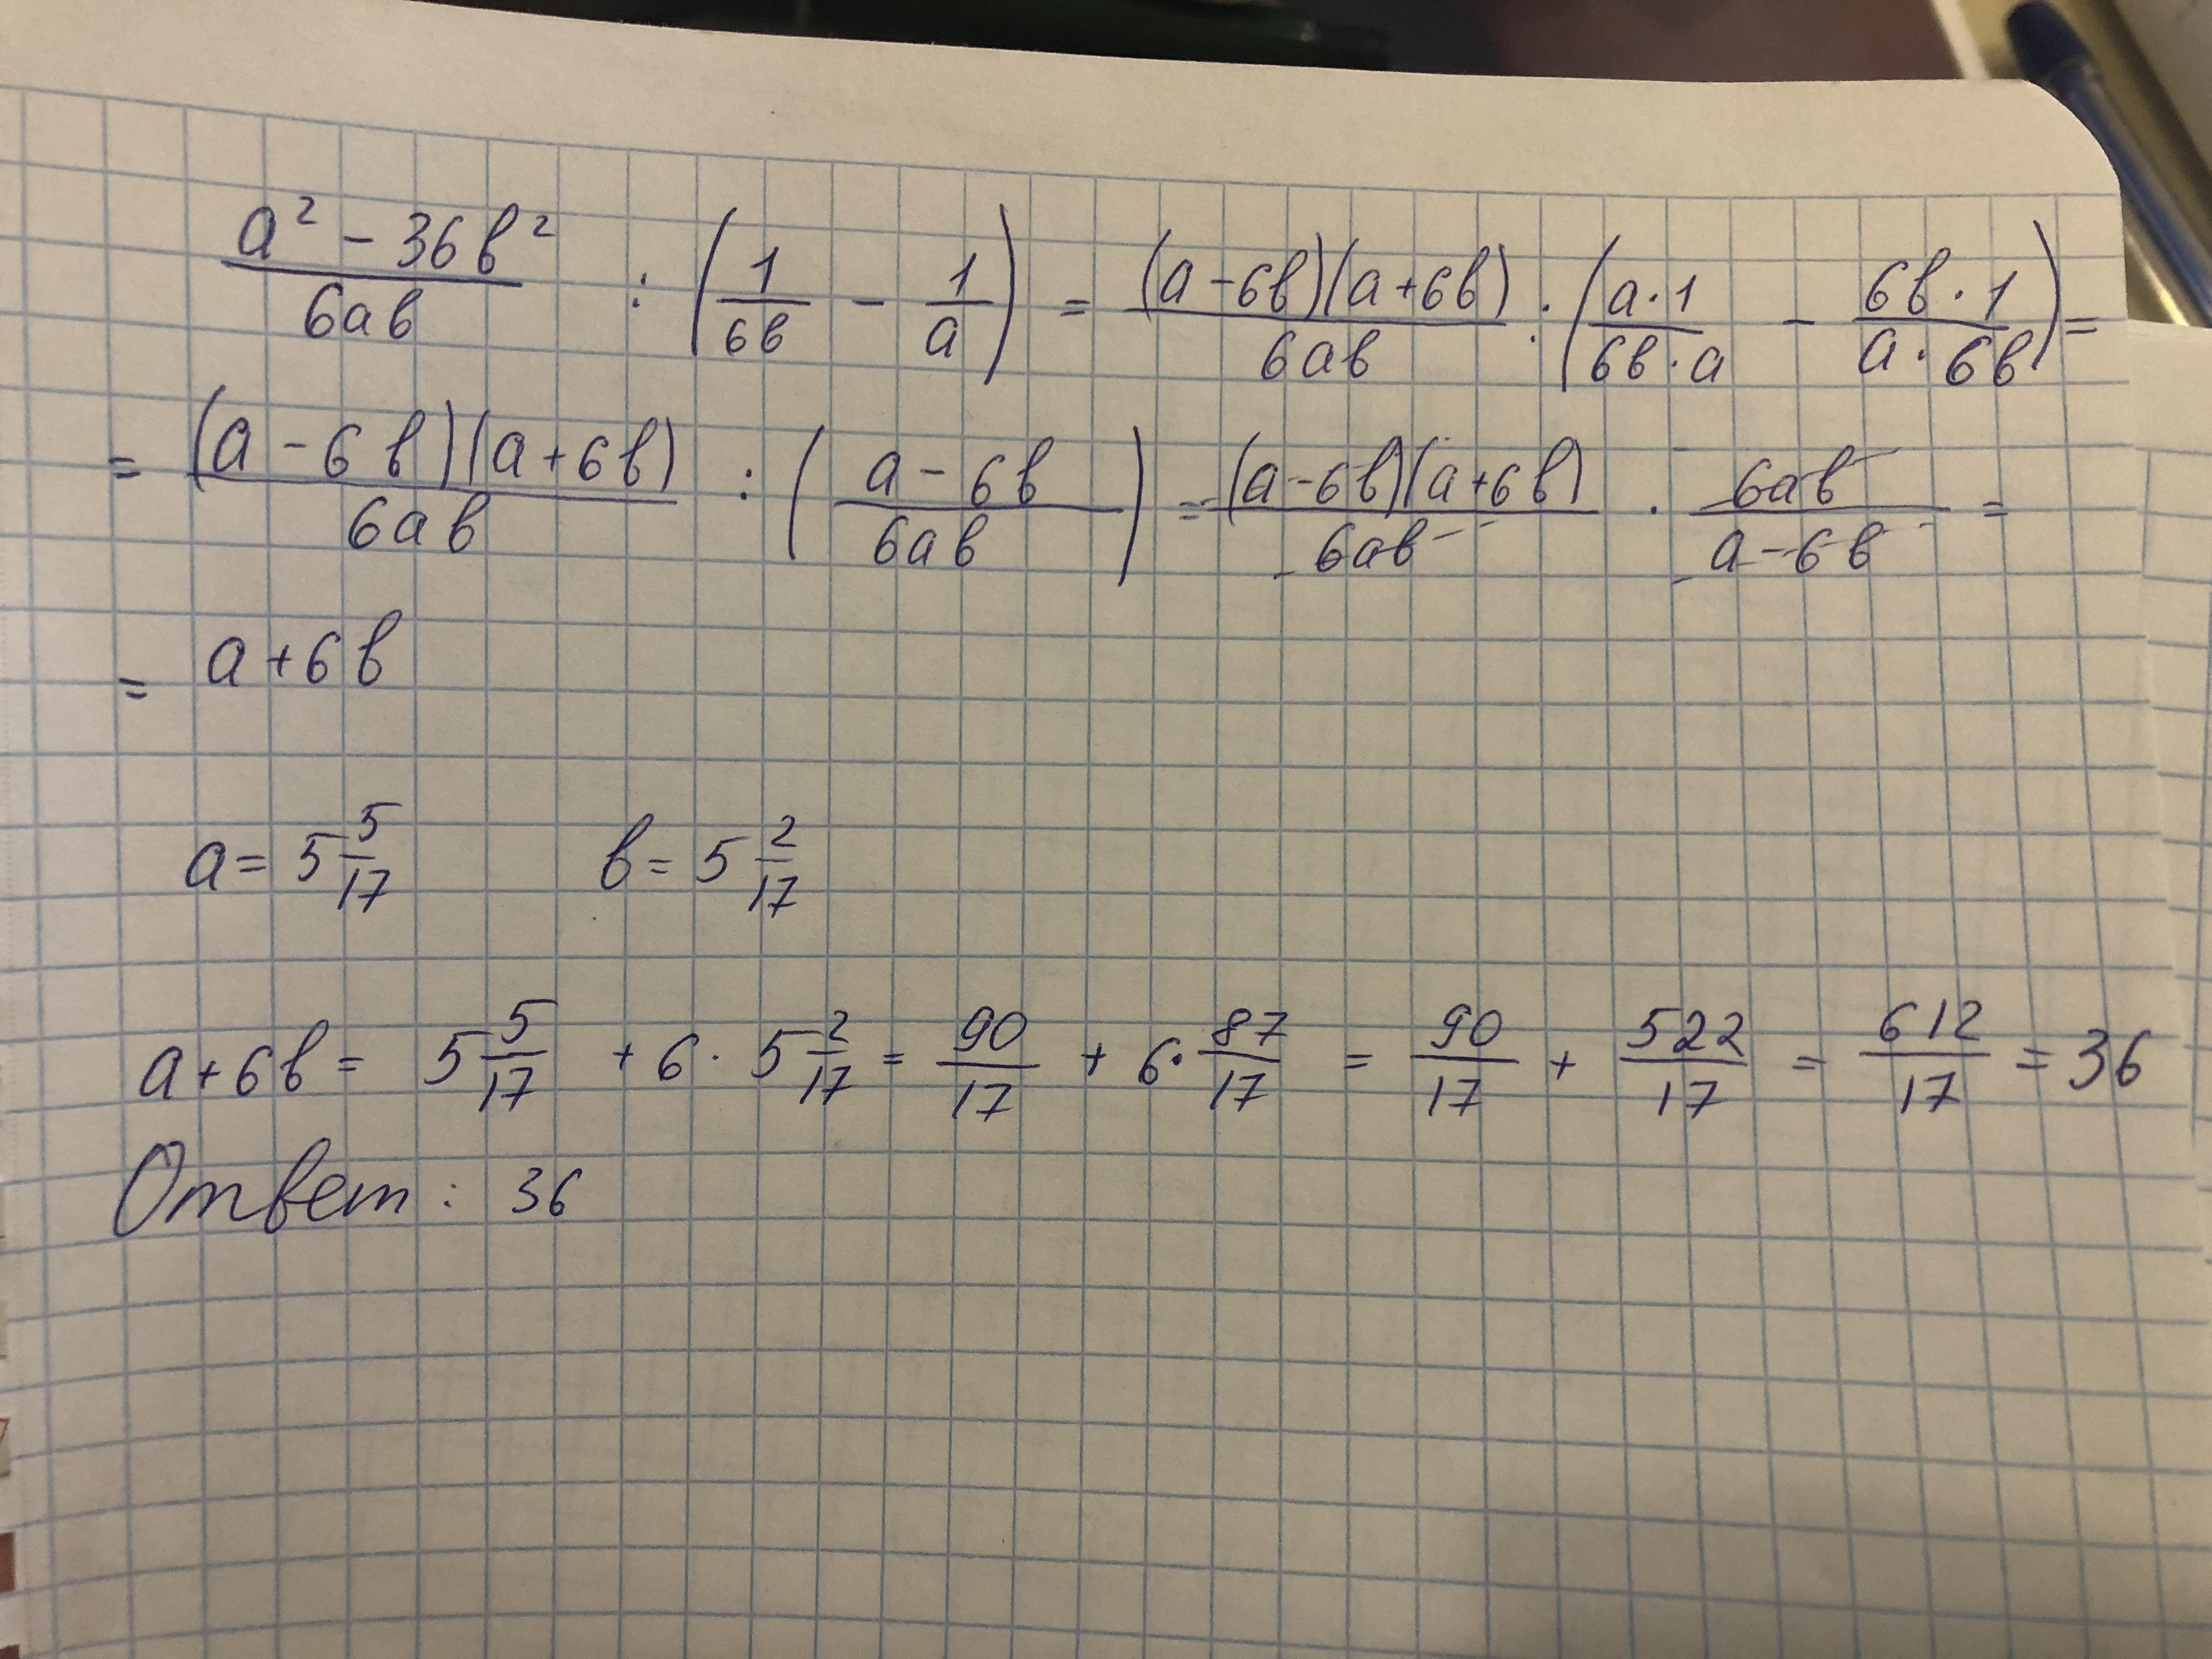 (a² - 36b²)/(6ab) : (1/(6b) - 1/a) = ((a - 6b)(a + 6b))/(6ab) : ((a · 1)/(6b · a) - (6b · 1)/(a · 6b)) =
= ((a - 6b)(a + 6b))/(6ab) : ((a - 6b)/(6ab)) = ((a - 6b)(a + 6b))/(6ab) · (6ab)/(a - 6b) =
= a + 6b
a = 5 5/17 b = 5 2/17
a + 6b = 5 5/17 + 6 · 5 2/17 = 90/17 + 6 · 87/17 = 90/17 + 522/17 = 612/17 = 36
Ответ : 36